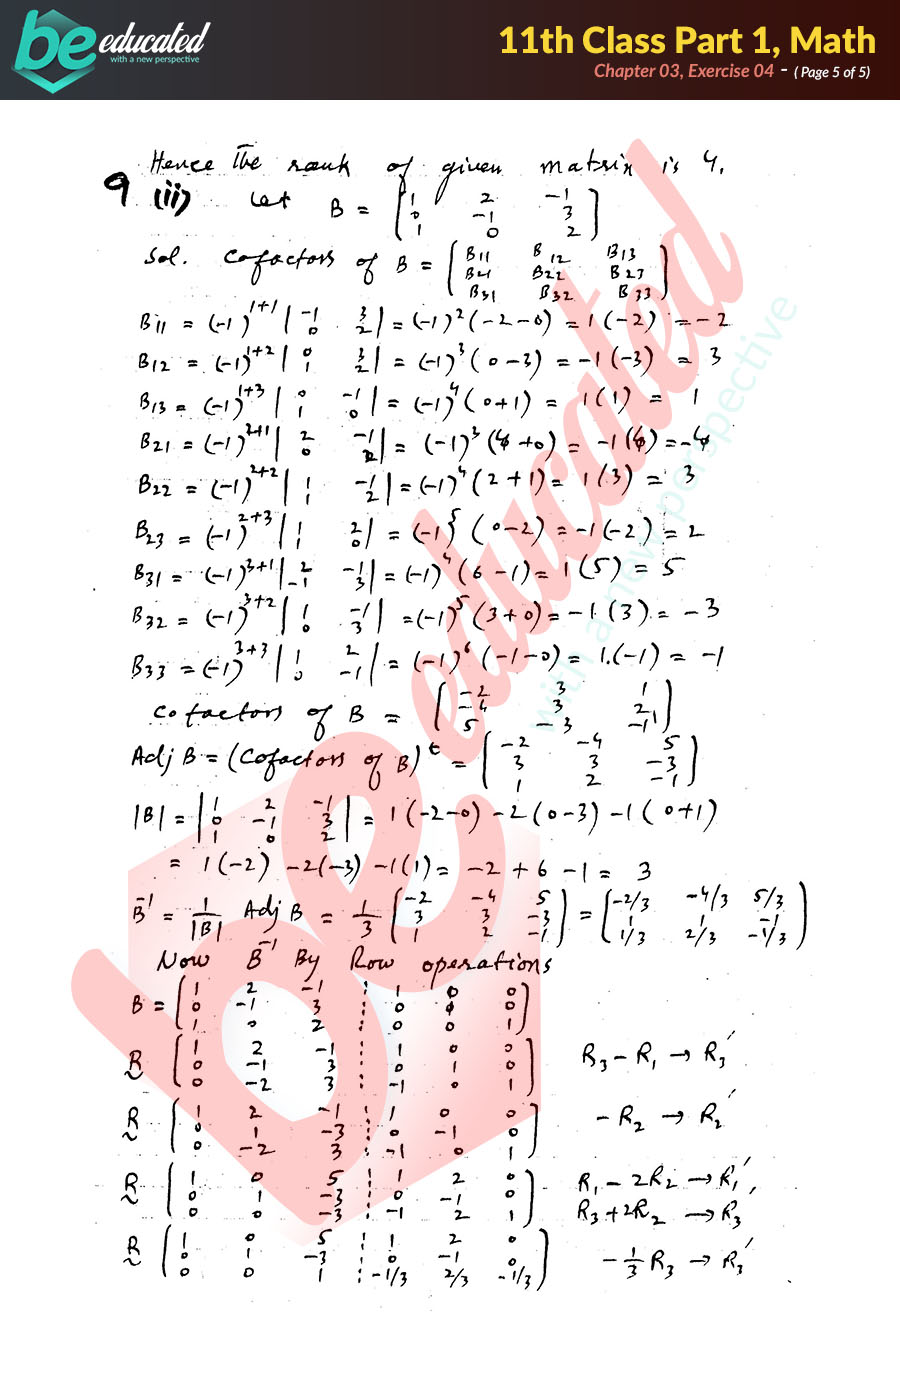 be educated
with a new perspective
11th Class Part 1, Math
Chapter 03, Exercise 04 - ( Page 5 of 5)
Hence The rank of given matrix is 4.
9 (ii) Let B = [1 2 -1
0 -1 3
1 0 2]
Sol. Cofactors of B = [B11 B12 B13
B21 B22 B23
B31 B32 B33]
B11 = (-1)^1+1 |-1 3 / 0 2| = (-1)^2 (-2-0) = 1(-2) = -2
B12 = (-1)^1+2 |0 3 / 1 2| = (-1)^3 (0-3) = -1(-3) = 3
B13 = (-1)^1+3 |0 -1 / 1 0| = (-1)^4 (0+1) = 1(1) = 1
B21 = (-1)^2+1 |2 -1 / 0 2| = (-1)^3 (4+0) = -1(4) = -4
B22 = (-1)^2+2 |1 -1 / 1 2| = (-1)^4 (2+1) = 1(3) = 3
B23 = (-1)^2+3 |1 2 / 1 0| = (-1)^5 (0-2) = -1(-2) = 2
B31 = (-1)^3+1 |2 -1 / -1 3| = (-1)^4 (6-1) = 1(5) = 5
B32 = (-1)^3+2 |1 -1 / 0 3| = (-1)^5 (3+0) = -1(3) = -3
B33 = (-1)^3+3 |1 2 / 0 -1| = (-1)^6 (-1-0) = 1.(-1) = -1
Cofactors of B = [-2 3 1
-4 3 2
5 -3 -1]
Adj B = (Cofactors of B)^t = [-2 -4 5
3 3 -3
1 2 -1]
|B| = |1 2 -1 / 0 -1 3 / 1 0 2| = 1(-2-0) -2(0-3) -1(0+1)
= 1(-2) -2(-3) -1(1) = -2 + 6 - 1 = 3
B^-1 = 1/|B| Adj B = 1/3 [-2 -4 5 / 3 3 -3 / 1 2 -1] = [-2/3 -4/3 5/3 / 1 1 -1 / 1/3 2/3 -1/3]
Now B^-1 By Row operations
B = [1 2 -1 ⋮ 1 0 0
0 -1 3 ⋮ 0 1 0
1 0 2 ⋮ 0 0 1]
R~ [1 2 -1 ⋮ 1 0 0
0 -1 3 ⋮ 0 1 0
0 -2 3 ⋮ -1 0 1] R3 - R1 → R3'
R~ [1 2 -1 ⋮ 1 0 0
0 1 -3 ⋮ 0 -1 0
0 -2 3 ⋮ -1 0 1] -R2 → R2'
R~ [1 0 5 ⋮ 1 2 0
0 1 -3 ⋮ 0 -1 0
0 0 -3 ⋮ -1 2 1] R1 - 2R2 → R1', R3 + 2R2 → R3'
R~ [1 0 5 ⋮ 1 2 0
0 1 -3 ⋮ 0 -1 0
0 0 1 ⋮ -1/3 2/3 -1/3] -1/3 R3 → R3'
be educated
with a new perspective